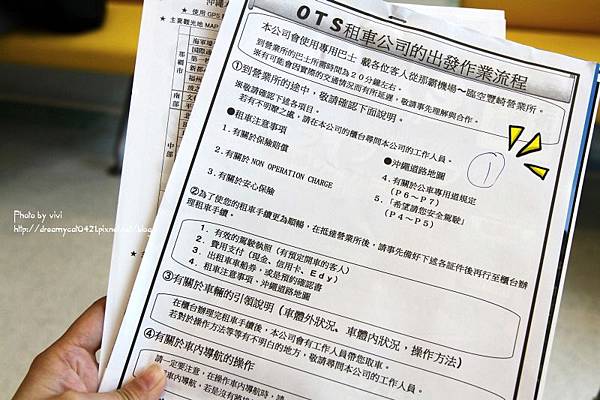 OTS租車公司的出發作業流程
本公司會使用專用巴士 載各位客人從那霸機場~臨空豐崎營業所。
到營業所的巴士所需時間為20分鐘左右。
※有可能會因實際的交通情況而有所延遲,敬請事先理解與合作。
①到營業所的途中,敬請確認下面說明。
※敬請確認下述各項目。
若有不明瞭之處,請在本公司的櫃台尋問本公司的工作人員。
●租車注意事項
1.有關於保險賠償
2.有關於 NON OPERATION CHARGE
3.有關於安心保險
●沖繩道路地圖
4.有關於公車專用道規定
(P6~P7)
5.「希望請您安全駕駛」
(P4~P5)
①
②為了使您的租車手續更為順暢,在抵達營業所後,請事先備好下述各證件後再行至櫃台辦
理租車手續。
1.有效的駕駛執照(有預定開車的客人)
2.費用支付(現金、信用卡、Edy)
3.出租車車船券,或是預約確認書
4.租車注意事項、沖繩道路地圖
③有關於車輛的引領說明(車體外狀況、車體內狀況,操作方法)
在櫃台辦理完租車手續後,本公司會有工作人員帶您取車。
若對於操作方法等等有不明白的地方,敬請尋問本公司的工作人員。
④有關於車內導航的操作
請一定要注意,在操作車內導航時,請
車內導航,若是沒有將
沖繩
★ 使用 GPS
★ 主要觀光地 MAP
那霸市
南部
中部
海軍壕
國際
第一
新都
福州
Photo by vivi
http://dreamycat0421.pixnet.net/blog